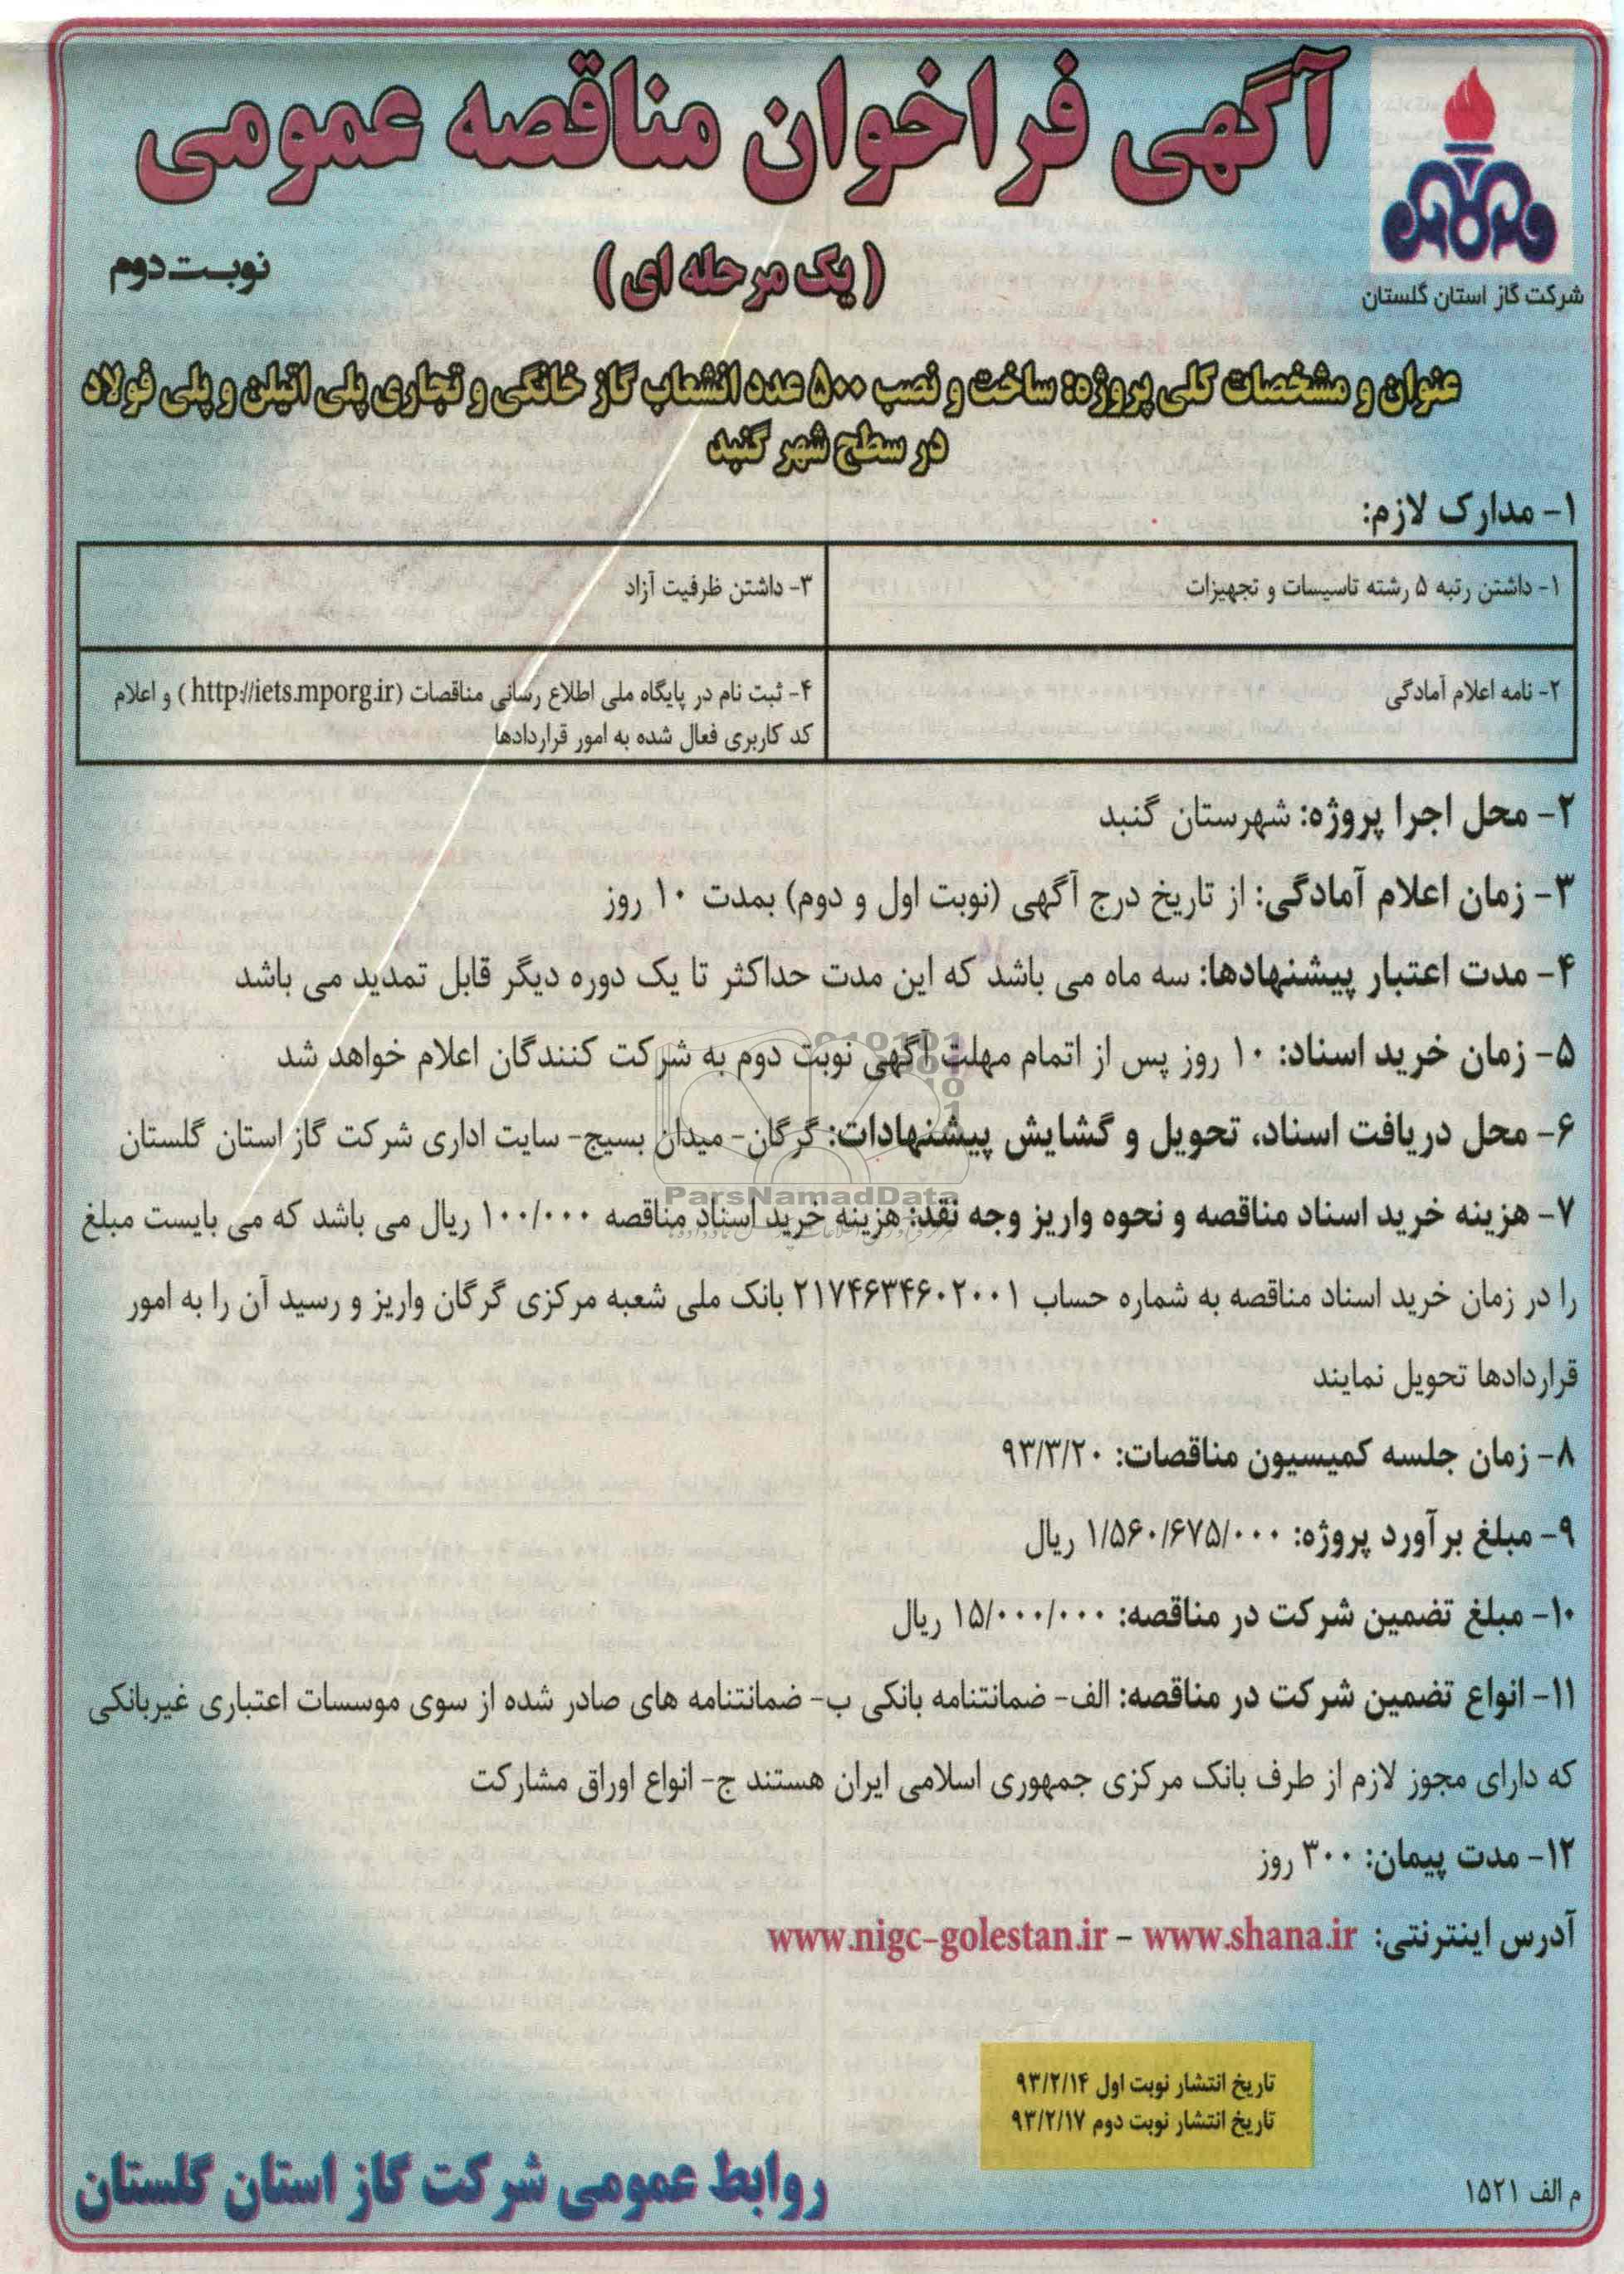 آگهی فراخوان مناقصه عمومی
( یک مرحله ای )
نوبت دوم
شرکت گاز استان گلستان
عنوان و مشخصات کلی پروژه: ساخت و نصب ۵۰۰ عدد انشعاب گاز خانگی و تجاری پلی اتیلن و پلی فولاد
در سطح شهر گنبد
۱- مدارک لازم:
۱- داشتن رتبه ۵ رشته تاسیسات و تجهیزات
۳- داشتن ظرفیت آزاد
۲- نامه اعلام آمادگی
۴- ثبت نام در پایگاه ملی اطلاع رسانی مناقصات (http://iets.mporg.ir ) و اعلام
کد کاربری فعال شده به امور قراردادها
۲- محل اجرا پروژه: شهرستان گنبد
۳- زمان اعلام آمادگی: از تاریخ درج آگهی (نوبت اول و دوم) بمدت ۱۰ روز
۴- مدت اعتبار پیشنهادها: سه ماه می باشد که این مدت حداکثر تا یک دوره دیگر قابل تمدید می باشد
۵- زمان خرید اسناد: ۱۰ روز پس از اتمام مهلت آگهی نوبت دوم به شرکت کنندگان اعلام خواهد شد
۶- محل دریافت اسناد، تحویل و گشایش پیشنهادات: گرگان- میدان بسیج- سایت اداری شرکت گاز استان گلستان
ParsNamadData
۷- هزینه خرید اسناد مناقصه و نحوه واریز وجه نقد: هزینه خرید اسناد مناقصه ۱۰۰/۰۰۰ ریال می باشد که می بایست مبلغ
را در زمان خرید اسناد مناقصه به شماره حساب ۲۱۷۴۶۳۴۶۰۲۰۰۱ بانک ملی شعبه مرکزی گرگان واریز و رسید آن را به امور
قراردادها تحویل نمایند
۸- زمان جلسه کمیسیون مناقصات: ۹۳/۳/۲۰
۹- مبلغ برآورد پروژه: ۱/۵۶۰/۶۷۵/۰۰۰ ریال
۱۰- مبلغ تضمین شرکت در مناقصه: ۱۵/۰۰۰/۰۰۰ ریال
۱۱- انواع تضمین شرکت در مناقصه: الف- ضمانتنامه بانکی ب- ضمانتنامه های صادر شده از سوی موسسات اعتباری غیربانکی
که دارای مجوز لازم از طرف بانک مرکزی جمهوری اسلامی ایران هستند ج- انواع اوراق مشارکت
۱۲- مدت پیمان: ۳۰۰ روز
آدرس اینترنتی: www.nigc-golestan.ir – www.shana.ir
تاریخ انتشار نوبت اول ۹۳/۲/۱۴
تاریخ انتشار نوبت دوم ۹۳/۲/۱۷
م الف ۱۵۲۱
روابط عمومی شرکت گاز استان گلستان